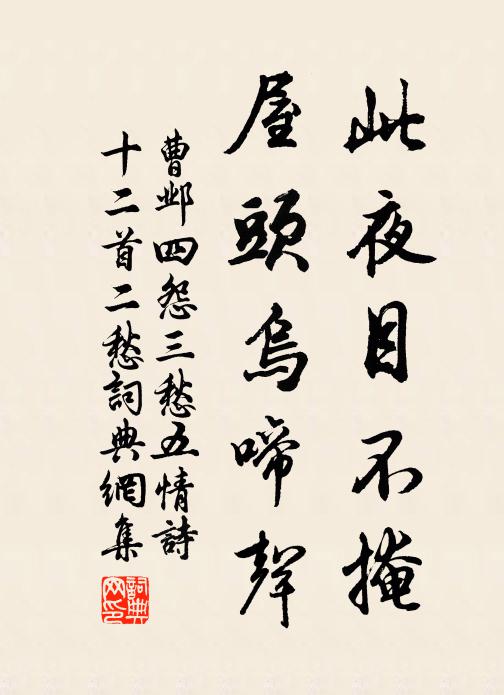 此夜目不掩
屋頭烏啼聲
曹邺四怨三愁五情詩
十二首二愁詞典網集
詞典網印